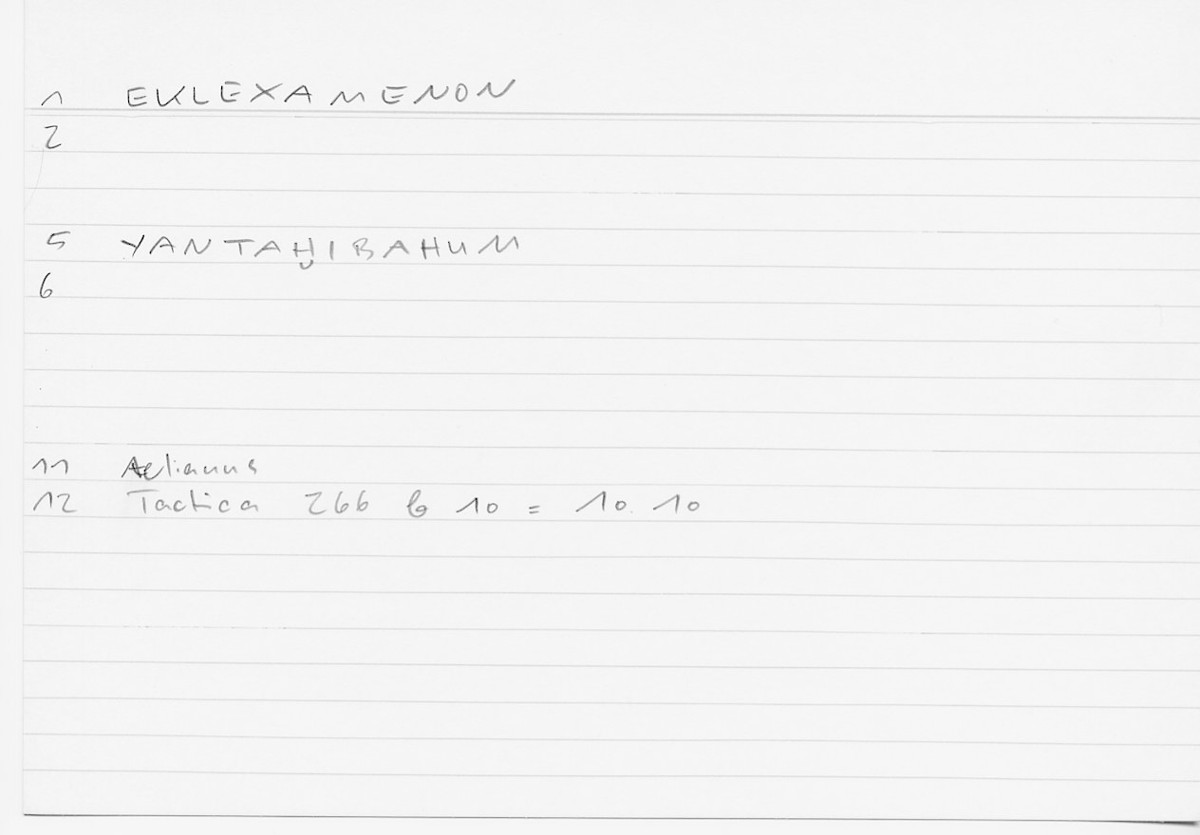 1 EKLEXAMENON
2
5 YANTAḪIBAHUM
6
11 Aelianus
12 Tactica 266 b 10 = 10.10